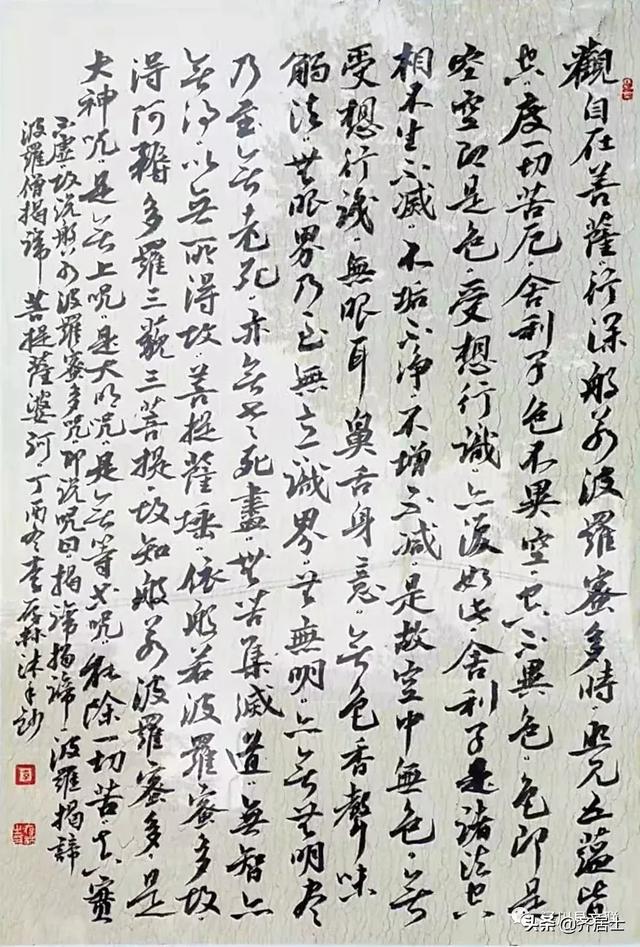 觀自在菩薩行深般若波羅蜜多時照見五蘊皆
空度一切苦厄舍利子色不異空空不異色色即是
空空即是色受想行識亦復如是舍利子是諸法空
相不生不滅不垢不淨不增不減是故空中無色無
受想行識無眼耳鼻舌身意無色香聲味
觸法無眼界乃至無意識界無無明亦無無明尽
乃至無老死亦無老死盡無苦集滅道無智亦
無得以無所得故菩提薩埵依般若波羅蜜多故
得阿耨多羅三藐三菩提故知般若波羅蜜多是
大神咒是無上咒是大明咒是無等等咒能除一切苦真實
不虛故說般若波羅蜜多咒即說咒曰揭諦揭諦波羅揭諦
波羅僧揭諦菩提薩婆訶丁酉冬書
头条 @齐居士